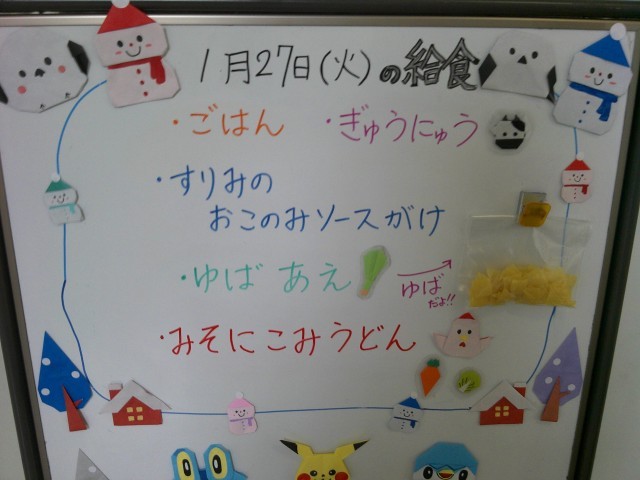 1月27日(火)の給食
・ごはん ・ぎゅうにゅう
・すりみの
おこのみソースがけ
・ゆば あえ
ゆば
だよ!!
・みそにこみうどん